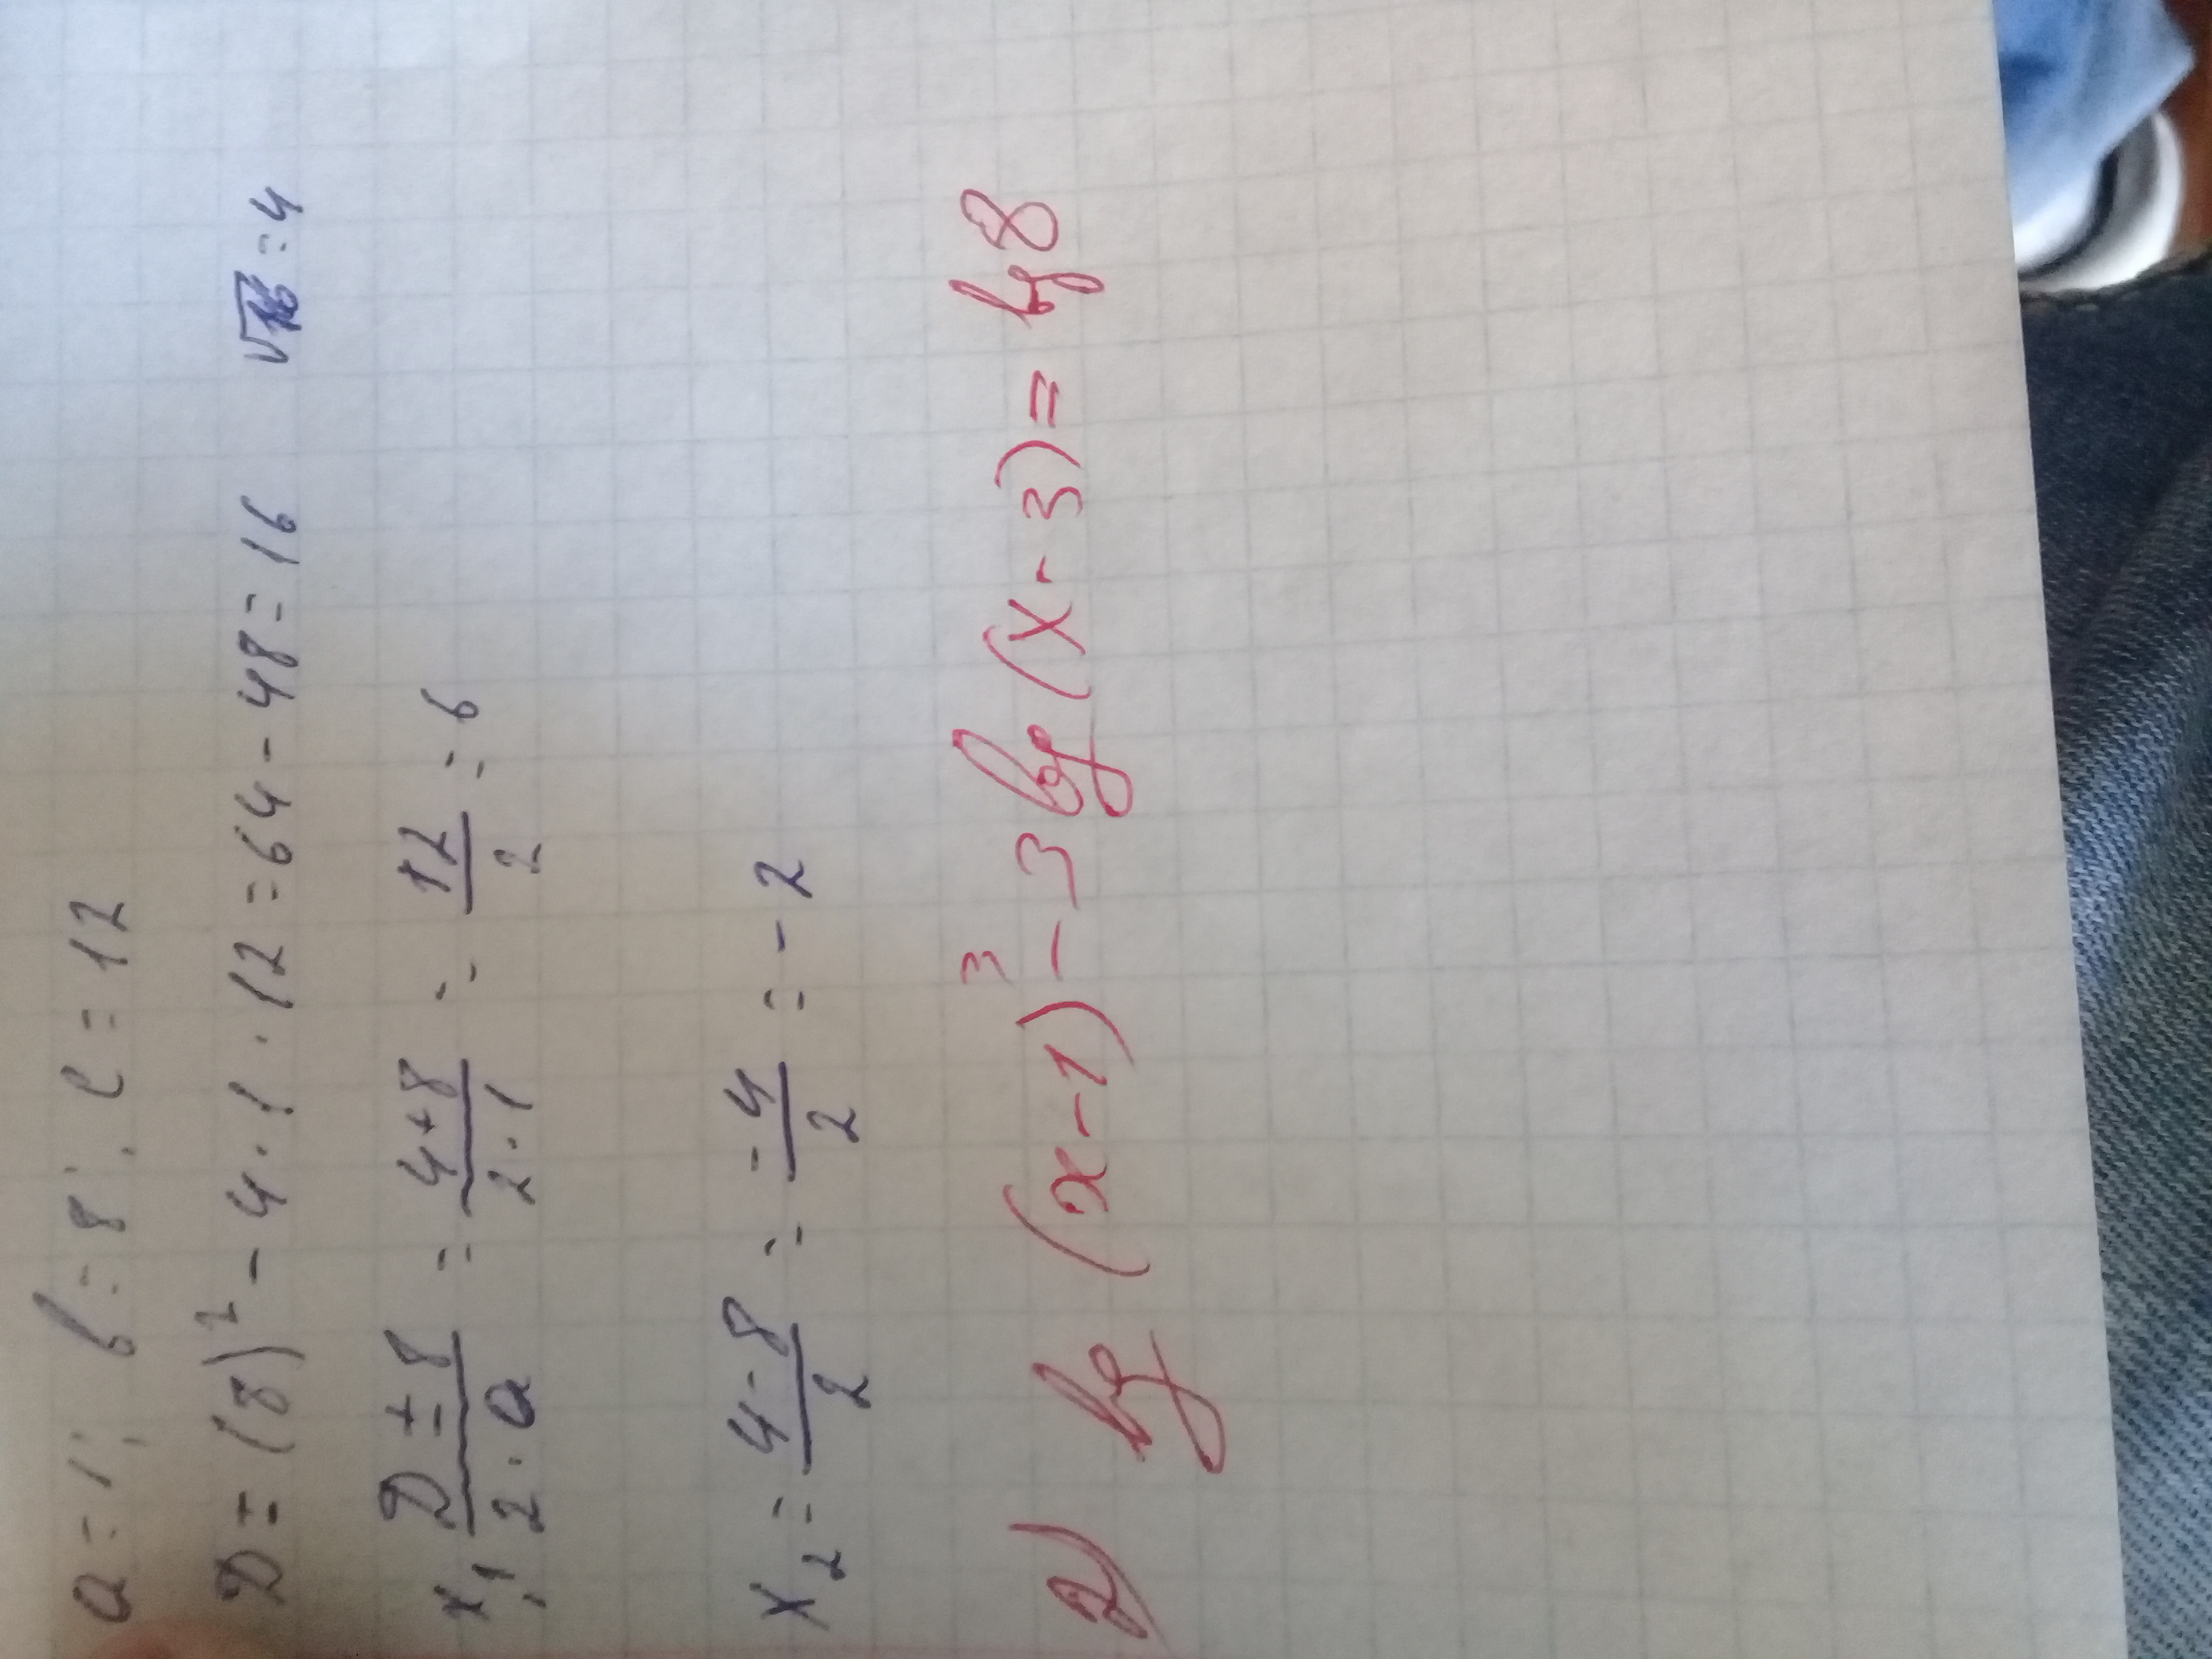 a = 1; b = 8; c = 12
D = (8)² - 4 · 1 · 12 = 64 - 48 = 16 √16 = 4
x₁ = (D ± 8)/(2 · a) = (4 + 8)/(2 · 1) = 12/2 = 6
x₂ = (4 - 8)/2 = -4/2 = -2
2) lg (x - 1)³ - 3 lg (x - 3) = lg 8